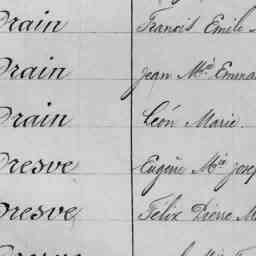 Drain Francis Emile
Drain Jean Mie Emma
Drain Léon Marie.
Dresve Eugène Mie Josep
Dresve Félix Pierre M